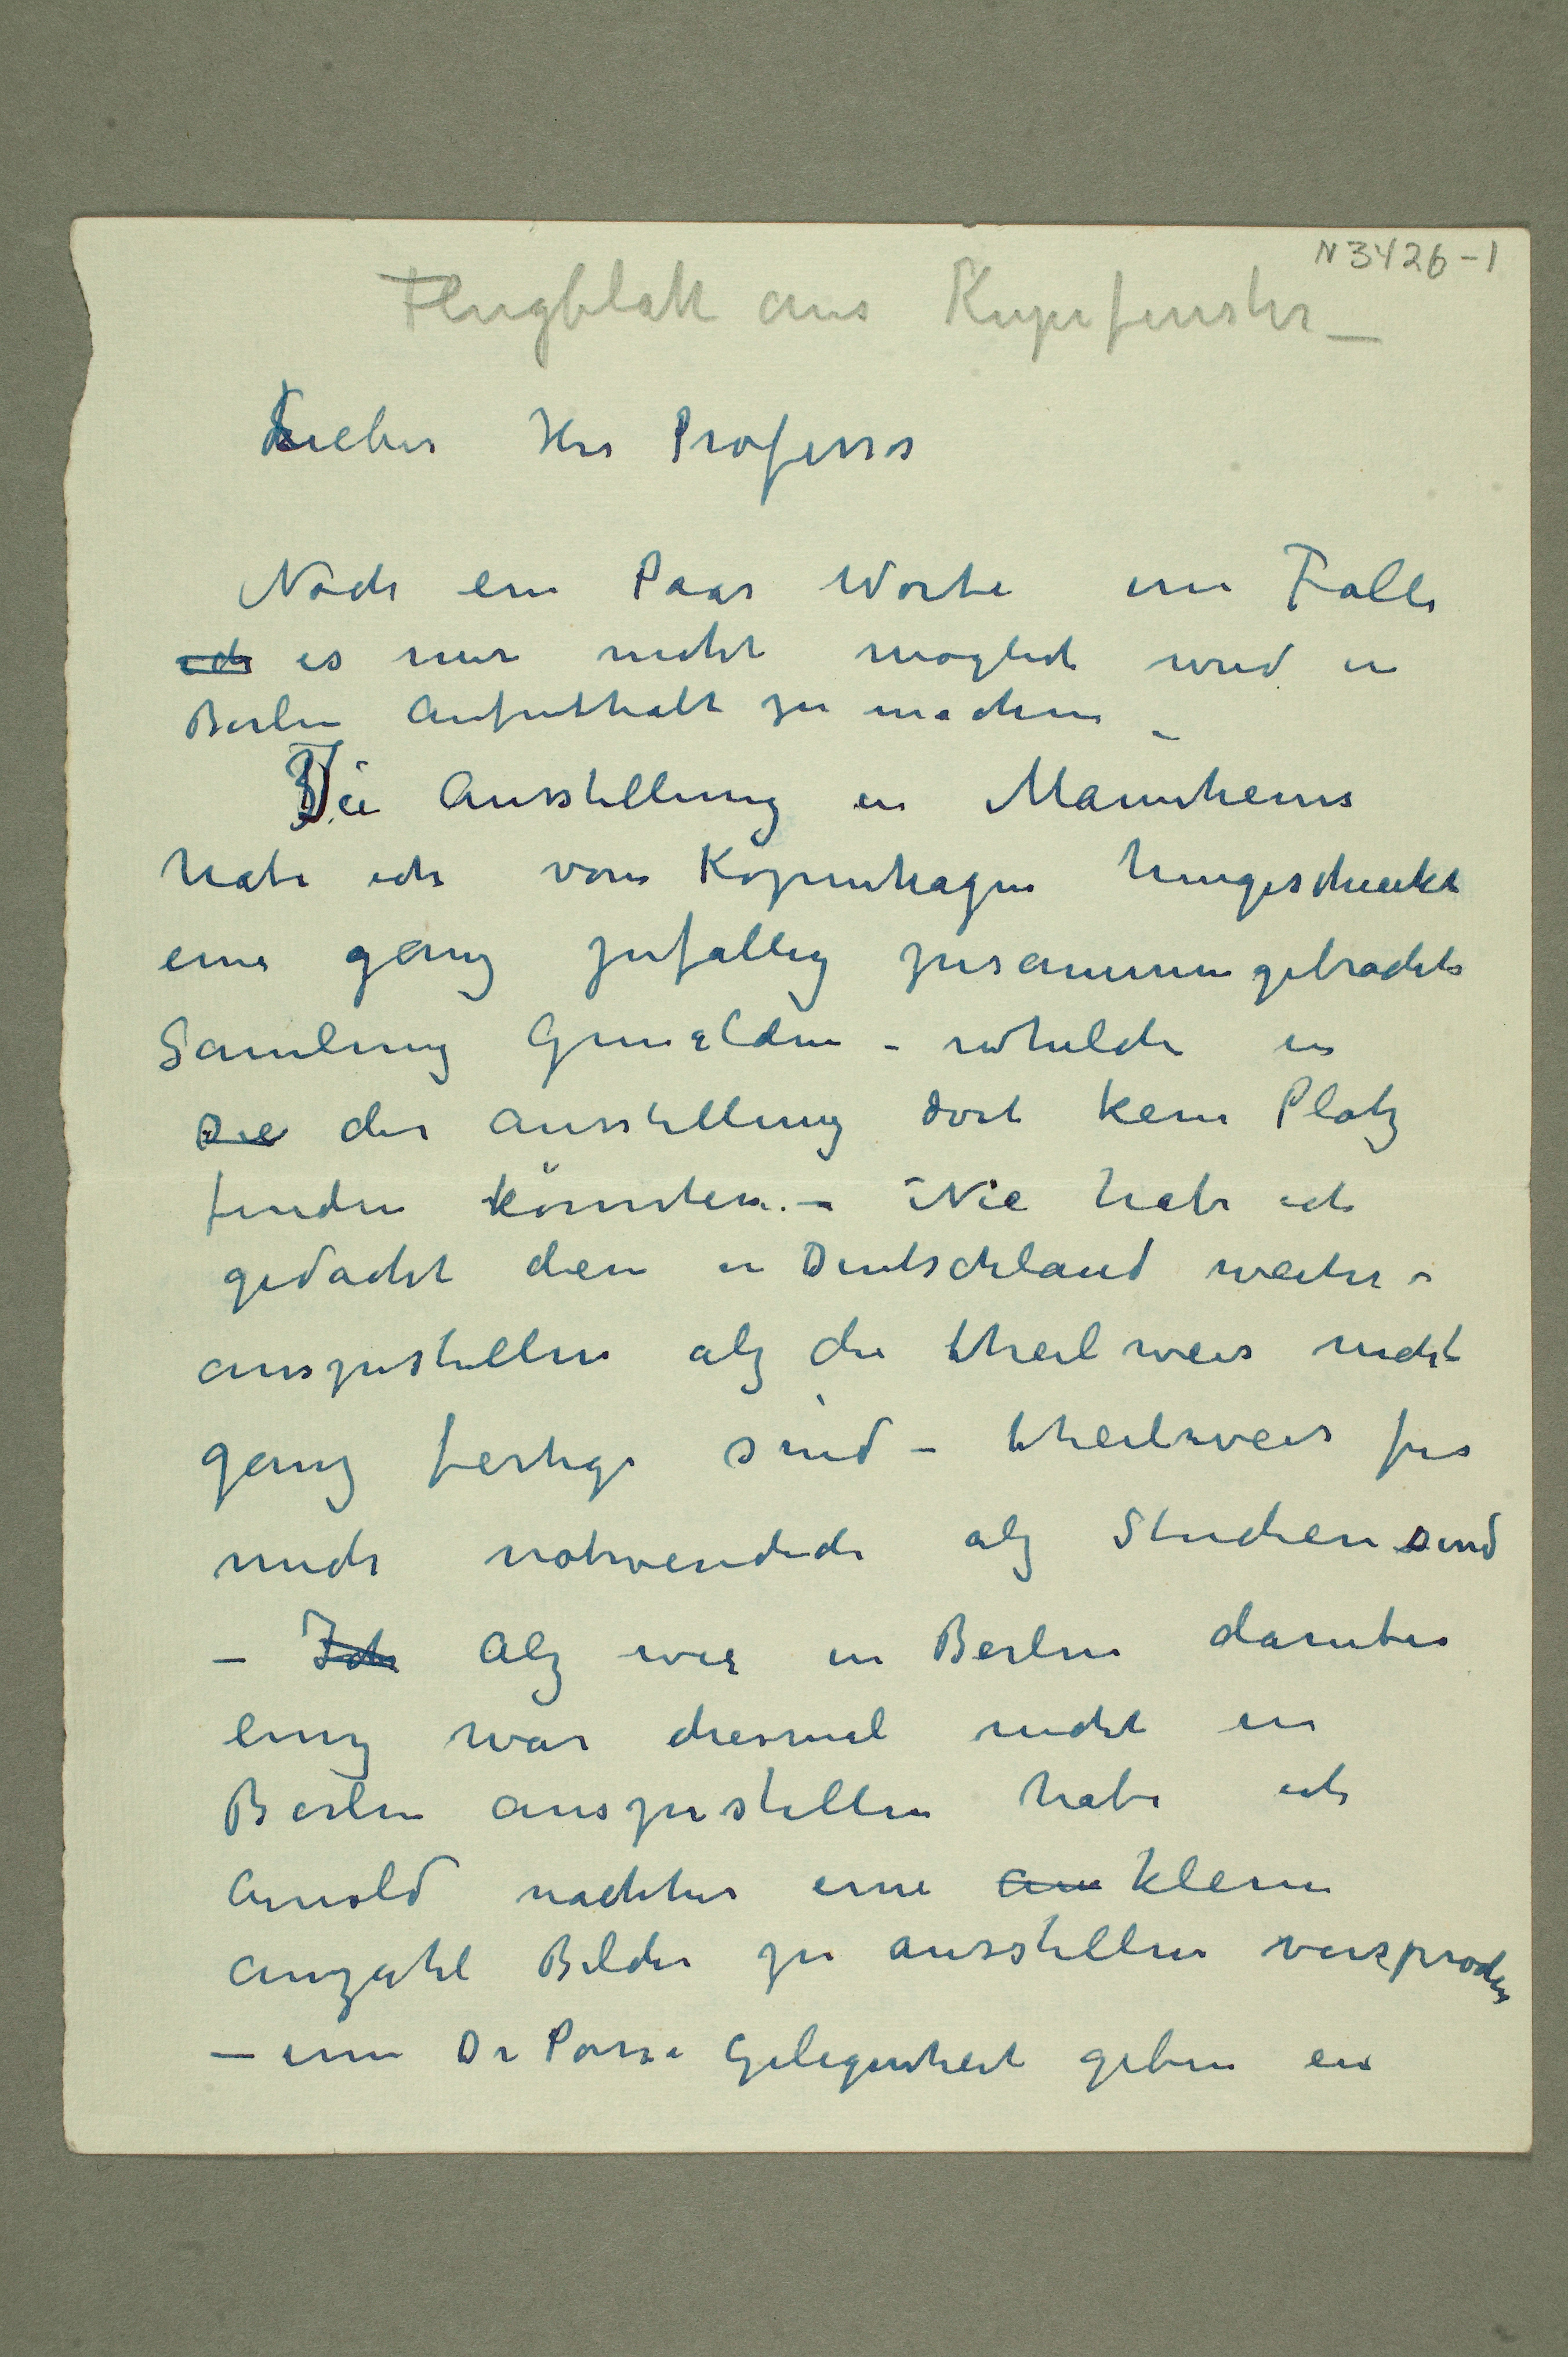 N 3426-1
Flugblatt aus Kupefenster –
Lieber Herr Professor
Noch ein Paar Worte im Falle
ich es mir nicht möglich wird in
Berlin Aufenthalt zu machen –
Die Ausstellung in Mannheim
habe ich von Kopenhagen hingeschickt
eine ganz zufällig zusammengebrachte
Samlung Gemälden – whelche in
Die der Ausstellung dort kein Platz
finden könnten. – Nie habe ich
gedacht diese in Deutschland weiter –
auszustellen alz die theilweis nicht
ganz fertige sind – theilsweis für
mich notwendich alz Studien sind
– Ich Alz wir in Berlin darüber
einig war diesmal nicht in
Berlin auszustellen habe ich
Arnold nachher eine an kleine
Anzahl Bilder zu ausstellen versprochen
– um Dr Posse Gelegenheit geben ein